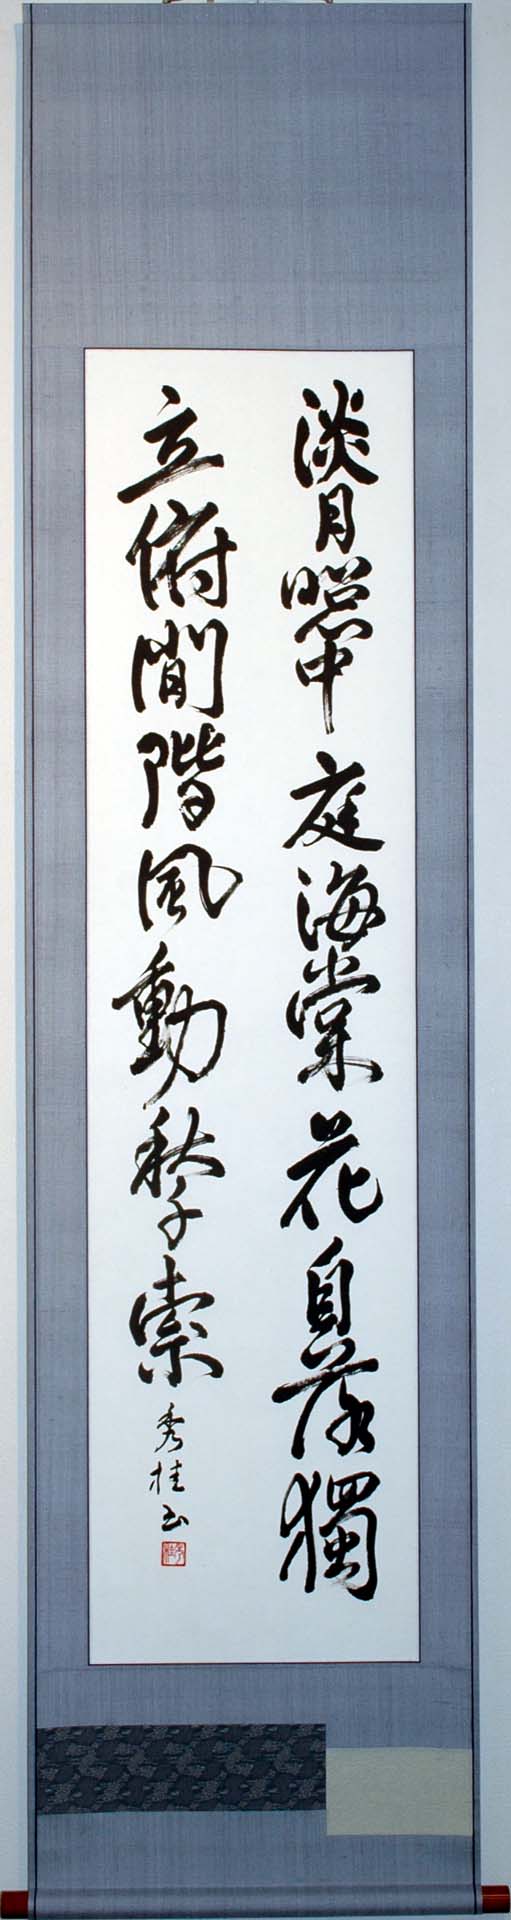 淡月照中庭海棠花自落獨
立俯閒階風動秋千索
秀桂书